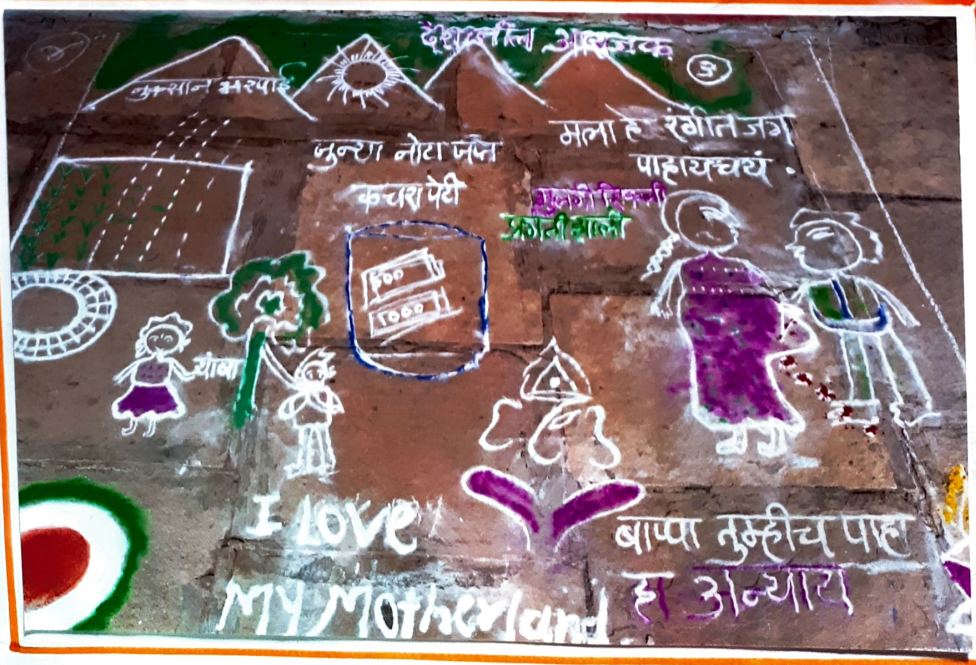 नुकसान भरपाई
३
जुन्या नोटा जप्त
कचरा पेटी
500
1000
मला हे रंगीत जग
पाहायचयं .
मुलगी शिकली
प्रगती झाली
थांबा
I Love
My Motherland.
बाप्पा तुम्हीच पाहा
हा अन्याय